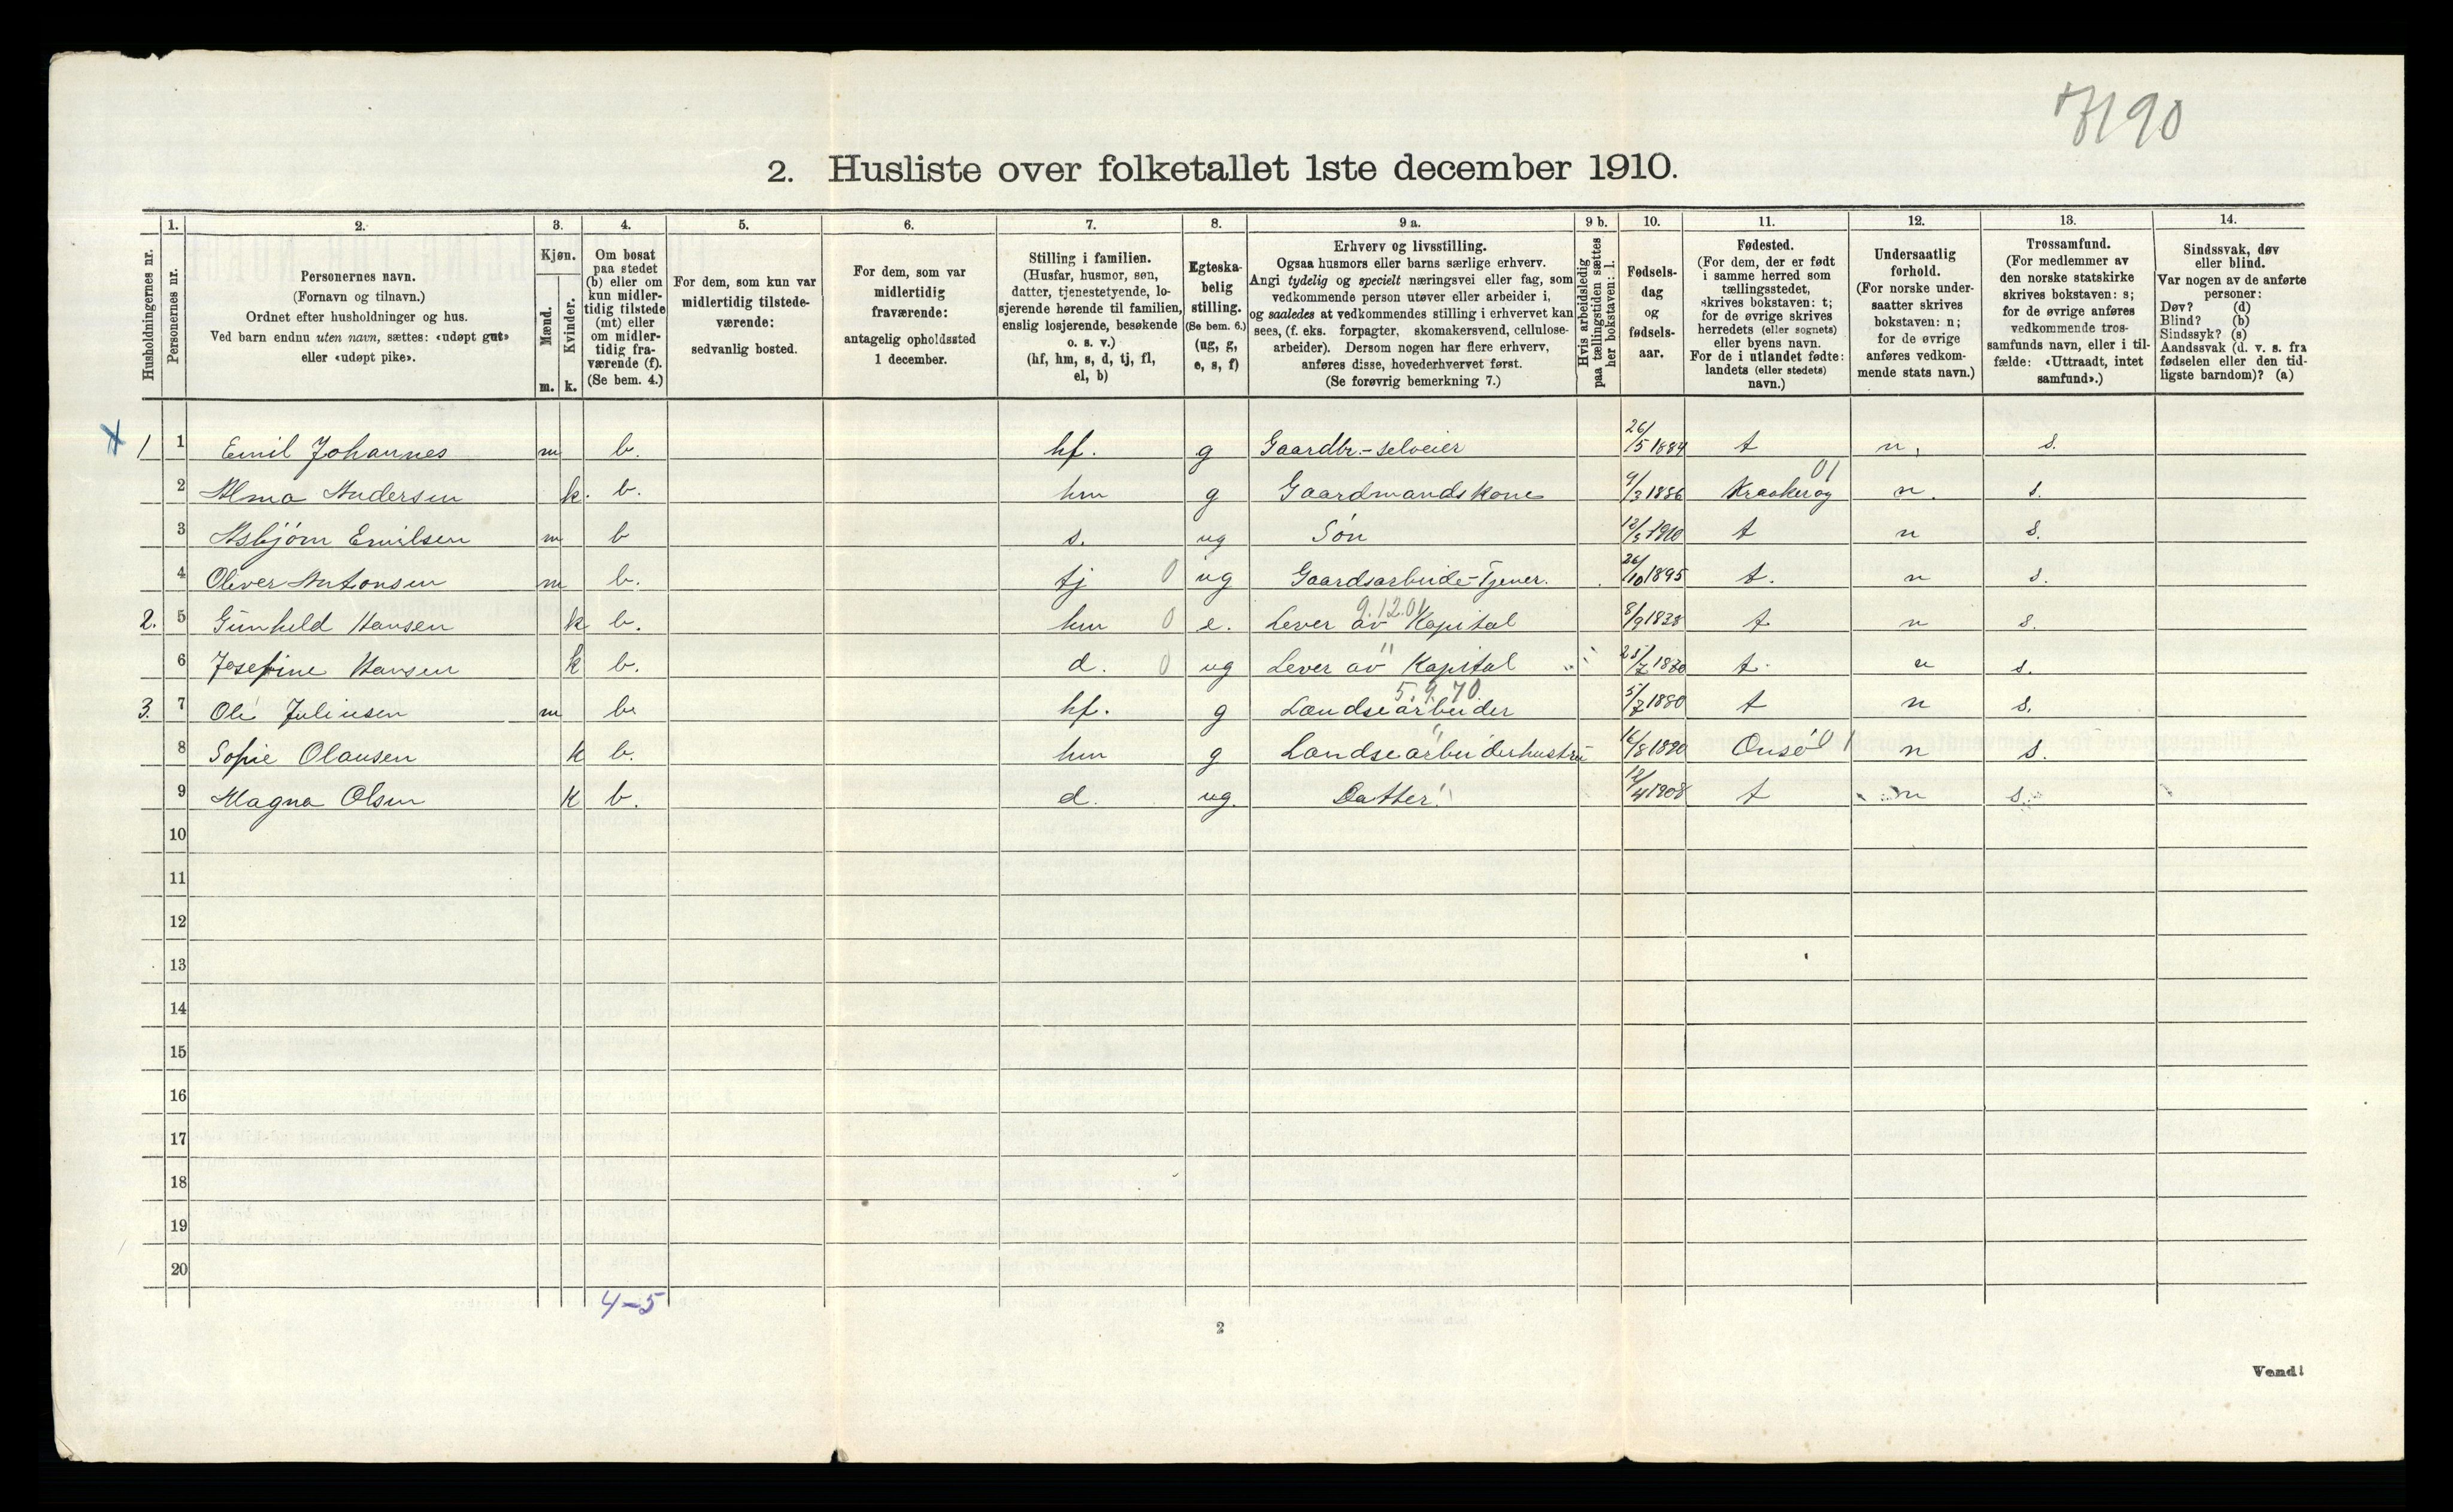 7190
2. Husliste over folketallet 1ste december 1910.
Husholdningernes nr.
1.
Personernes nr.
2.
Personernes navn.
(Fornavn og tilnavn.)
Ordnet efter husholdninger og hus.
Ved barn endnu uten navn, sættes: «udøpt gut»
eller «udøpt pike».
3.
Kjøn.
Mænd.
Kvinder.
m. k.
4.
Om bosat
paa stedet
(b) eller om
kun midler-
tidig tilstede
(mt) eller
om midler-
tidig fra-
værende (f).
(Se bem. 4.)
5.
For dem, som kun var
midlertidig tilstede-
værende:
sedvanlig bosted.
6.
For dem, som var
midlertidig
fraværende:
antagelig opholdssted
1 december.
7.
Stilling i familien.
(Husfar, husmor, søn,
datter, tjenestetyende, lo-
sjerende hørende til familien,
enslig losjerende, besøkende
o. s. v.)
(hf, hm, s, d, tj, fl,
el, b)
8.
Egteska-
belig
stilling.
(Se bem. 6.)
(ug, g,
e, s, f)
9 a.
Erhverv og livsstilling.
Ogsaa husmors eller barns særlige erhverv.
Angi tydelig og specielt næringsvei eller fag, som
vedkommende person utøver eller arbeider i,
og saaledes at vedkommendes stilling i erhvervet kan
sees, (f. eks. forpagter, skomakersvend, cellulose-
arbeider). Dersom nogen har flere erhverv,
anføres disse, hovederhvervet først.
(Se forøvrig bemerkning 7.)
9 b.
Hvis arbeidsledig
paa tællingstiden sættes
her bokstaven: l.
10.
Fødsels-
dag
og
fødsels-
aar.
11.
Fødested.
(For dem, der er født
i samme herred som
tællingsstedet,
skrives bokstaven: t;
for de øvrige skrives
herredets (eller sognets)
eller byens navn.
For de i utlandet fødte:
landets (eller stedets)
navn.)
12.
Undersaatlig
forhold.
(For norske under-
saatter skrives
bokstaven: n;
for de øvrige
anføres vedkom-
mende stats navn.)
13.
Trossamfund.
(For medlemmer av
den norske statskirke
skrives bokstaven: s;
for de øvrige anføres
vedkommende tros-
samfunds navn, eller i til-
fælde: «Uttraadt, intet
samfund».)
14.
Sindssvak, døv
eller blind.
Var nogen av de anførte
personer:
Døv? (d)
Blind? (b)
Sindssyk? (s)
Aandssvak (d. v. s. fra
fødselen eller den tid-
ligste barndom)? (a)
1 1 Emil Johannes m b. hf. g Gaardbr.-selveier 26/5 1884 t n. s.
2 Alma Andersen k. b. hm g Gaardmandskone 9/3 1886 Kraakerøy 01 n. s.
3 Asbjørn Emilsen m b s. ug Søn 12/5 1910 t n s.
4 Oliver Antonsen m b. tj 0 ug Gaardsarbeide-Tjener. 26/10 1895 t. n s.
2. 5 Gunhild Hansen k b. hm 0 e. Lever av Kapital 9.12.01 8/9 1838 t n s.
6 Josefine Hansen k b. d. 0 ug Lever av Kapital " 25/7 1870 t. n s.
3. 7 Ole Juliusen m b. hf. g Landsearbeider 5.9.70. 5/7 1880 t n s.
8 Sofie Olausen k b. hm g Landsearbeiderhustru " 16/8 1890 Onsø 01 n s.
9 Magna Olsen k b. d. ug. Datter " 12/4 1908 t n s.
10
11
12
13
14
15
16
17
18
19
20
4-5
2
Vend!